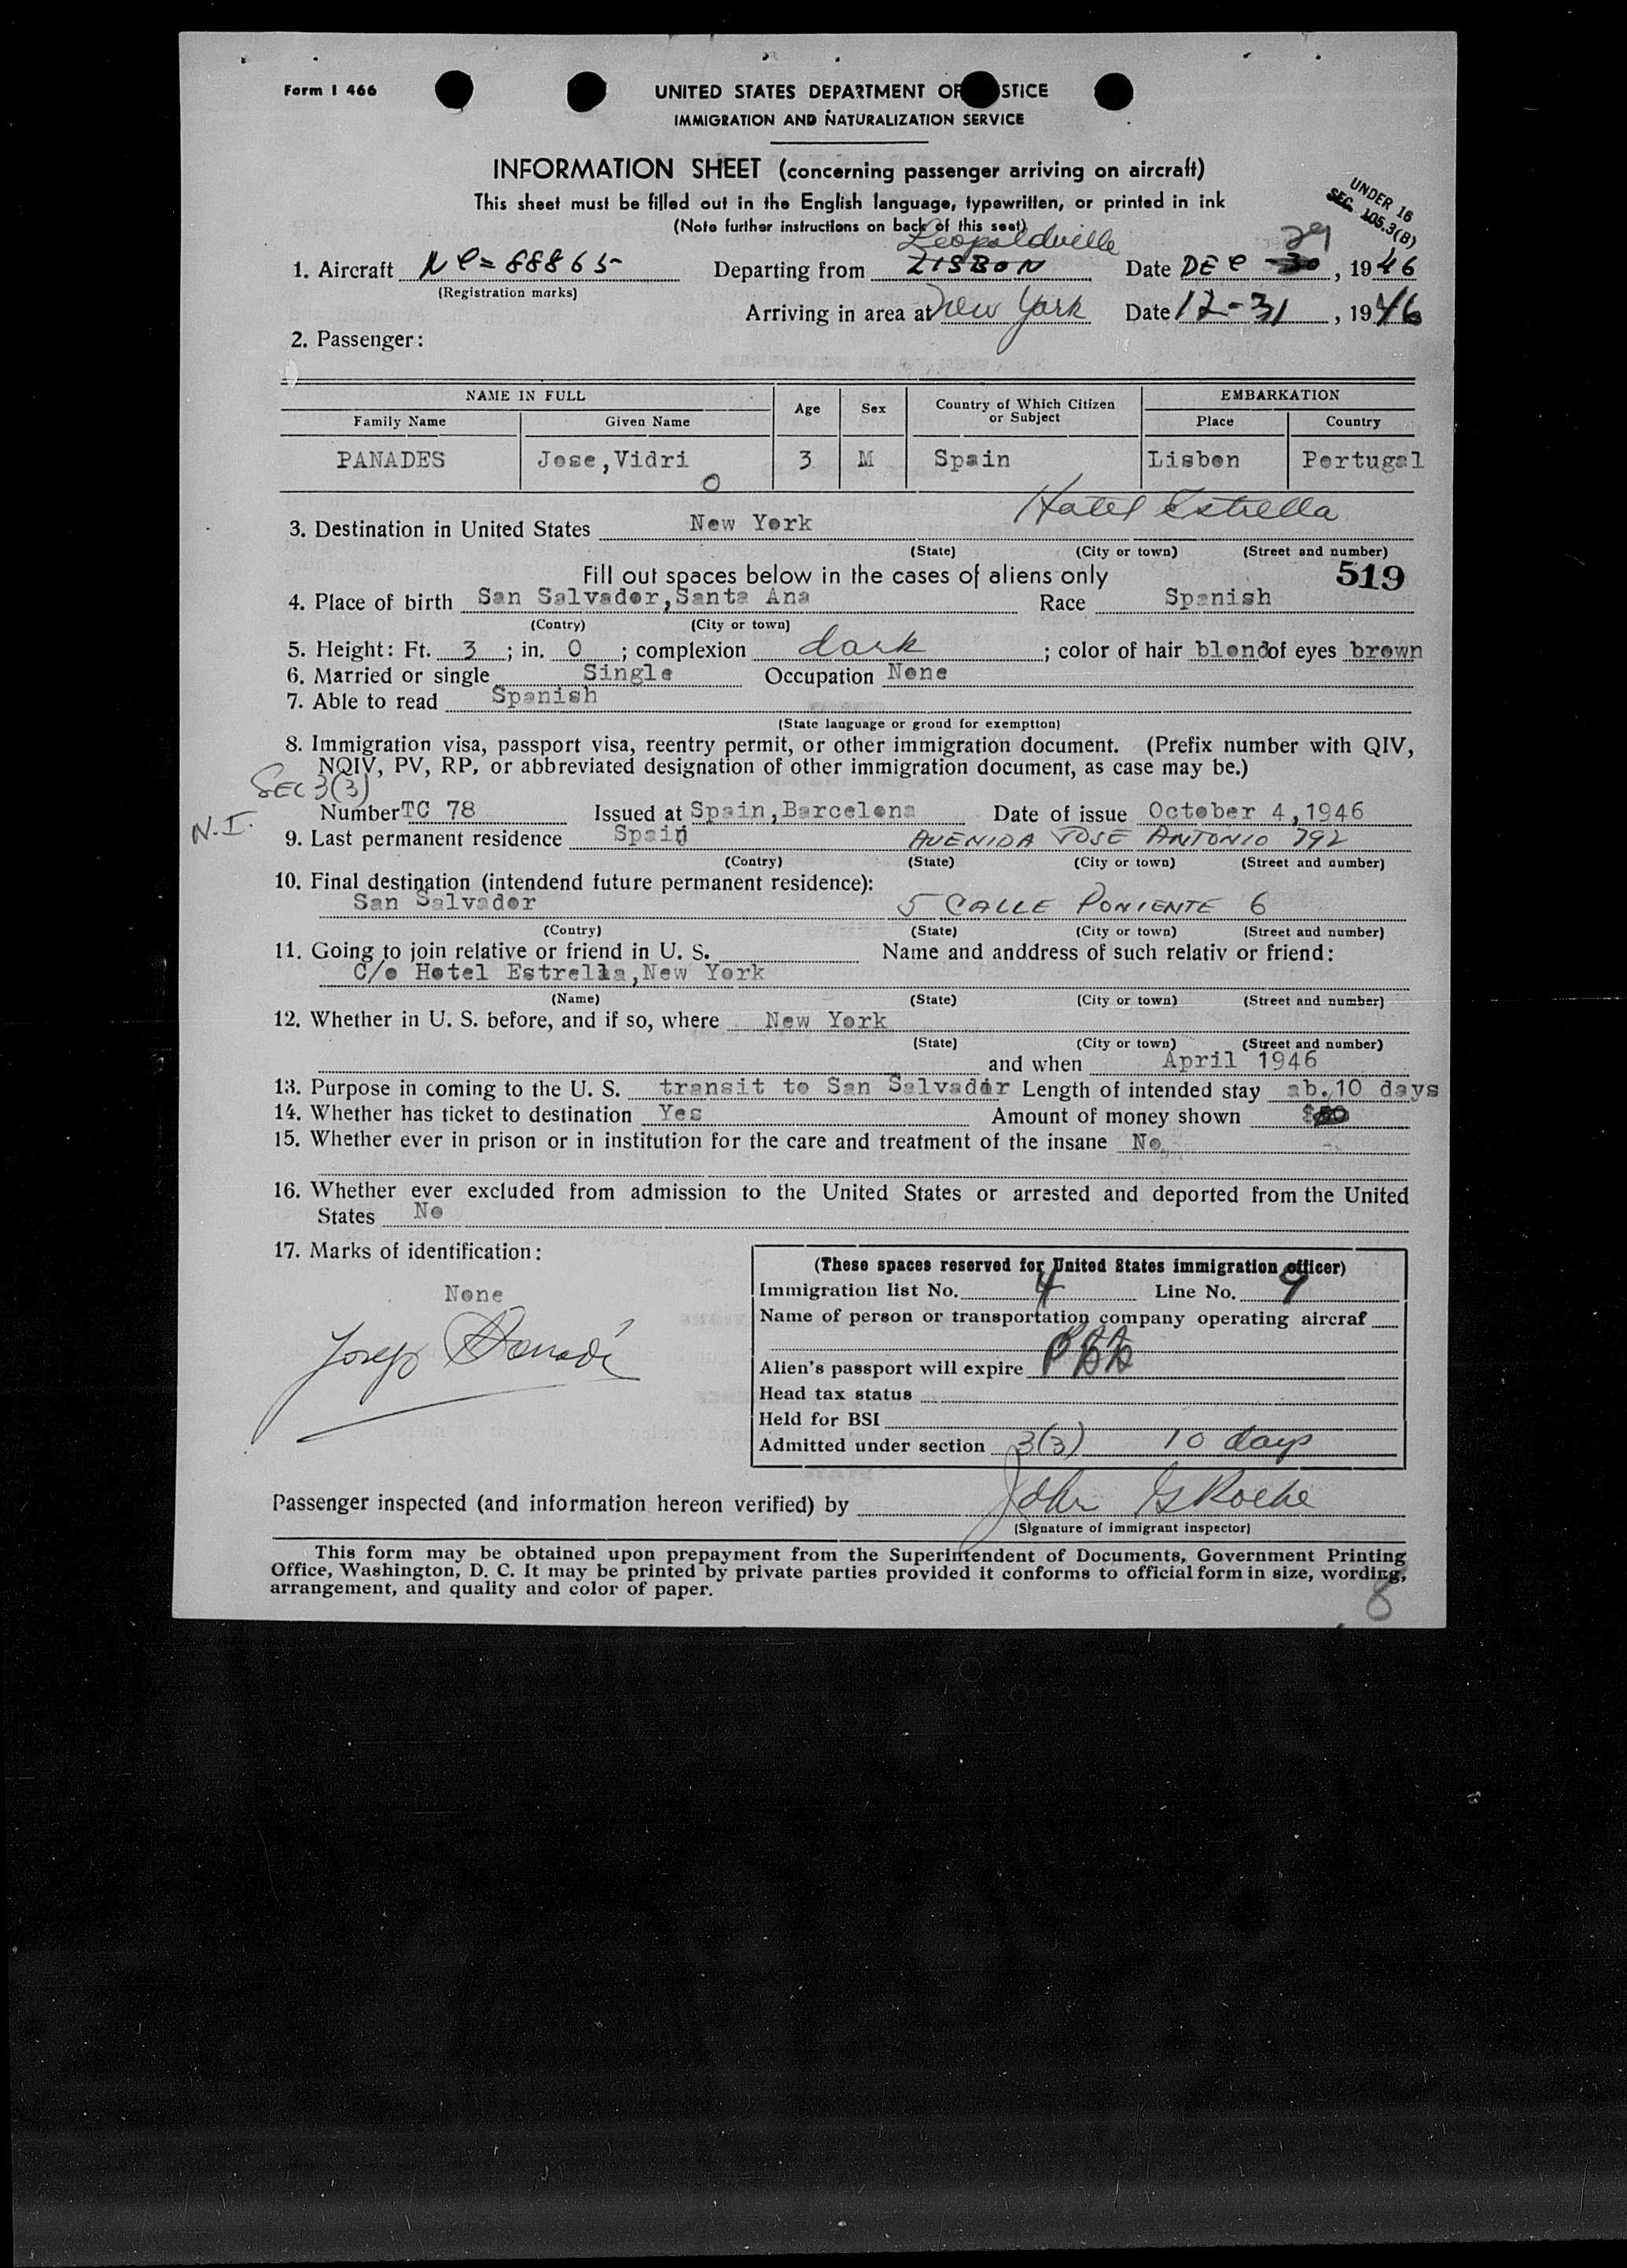 Form I 466
UNITED STATES DEPARTMENT OF STICE
IMMIGRATION AND NATURALIZATION SERVICE
INFORMATION SHEET (concerning passenger arriving on aircraft)
This sheet must be filled out in the English language, typewritten, or printed in ink
(Note further instructions on back of this seet)
UNDER 16
SEC. 105.3(B)
Leopoldville 29
1. Aircraft NC=88865 Departing from LISBON Date DEC -30, 1946
(Registration marks)
Arriving in area at New York Date 12-31, 1946
2. Passenger:
NAME IN FULL Age Sex Country of Which Citizen or Subject EMBARKATION
Family Name Given Name Place Country
PANADES Jose,Vidri 3 M Spain Lisbon Portugal
O
Hotel Estrella
3. Destination in United States New York
(State) (City or town) (Street and number)
Fill out spaces below in the cases of aliens only 519
4. Place of birth San Salvador,Santa Ana Race Spanish
(Contry) (City or town)
5. Height: Ft. 3; in. 0; complexion dark; color of hair blond of eyes brown
6. Married or single Single Occupation None
7. Able to read Spanish
(State language or grond for exemptton)
8. Immigration visa, passport visa, reentry permit, or other immigration document. (Prefix number with QIV,
NQIV, PV, RP, or abbreviated designation of other immigration document, as case may be.)
SEC 3(3)
Number TC 78 Issued at Spain,Barcelona Date of issue October 4,1946
N.I.
9. Last permanent residence Spain AVENIDA JOSE ANTONIO 792
(Contry) (State) (City or town) (Street and number)
10. Final destination (intendend future permanent residence):
San Salvador 5 CALLE PONIENTE 6
(Contry) (State) (City or town) (Street and number)
11. Going to join relative or friend in U. S. Name and anddress of such relativ or friend:
C/o Hotel Estrella,New York
(Name) (State) (City or town) (Street and number)
12. Whether in U. S. before, and if so, where New York
(State) (City or town) (Street and number)
and when April 1946
13. Purpose in coming to the U. S. transit to San Salvador Length of intended stay ab.10 days
14. Whether has ticket to destination Yes Amount of money shown
15. Whether ever in prison or in institution for the care and treatment of the insane No
16. Whether ever excluded from admission to the United States or arrested and deported from the United
States No
17. Marks of identification:
None
(These spaces reserved for United States immigration officer)
Immigration list No. 4 Line No. 9
Name of person or transportation company operating aircraf
Alien's passport will expire
Head tax status
Held for BSI
Admitted under section 3(3) 10 days
Passenger inspected (and information hereon verified) by John G Roche
(Signature of immigrant inspector)
This form may be obtained upon prepayment from the Superintendent of Documents, Government Printing
Office, Washington, D. C. It may be printed by private parties provided it conforms to official form in size, wording,
arrangement, and quality and color of paper.
8